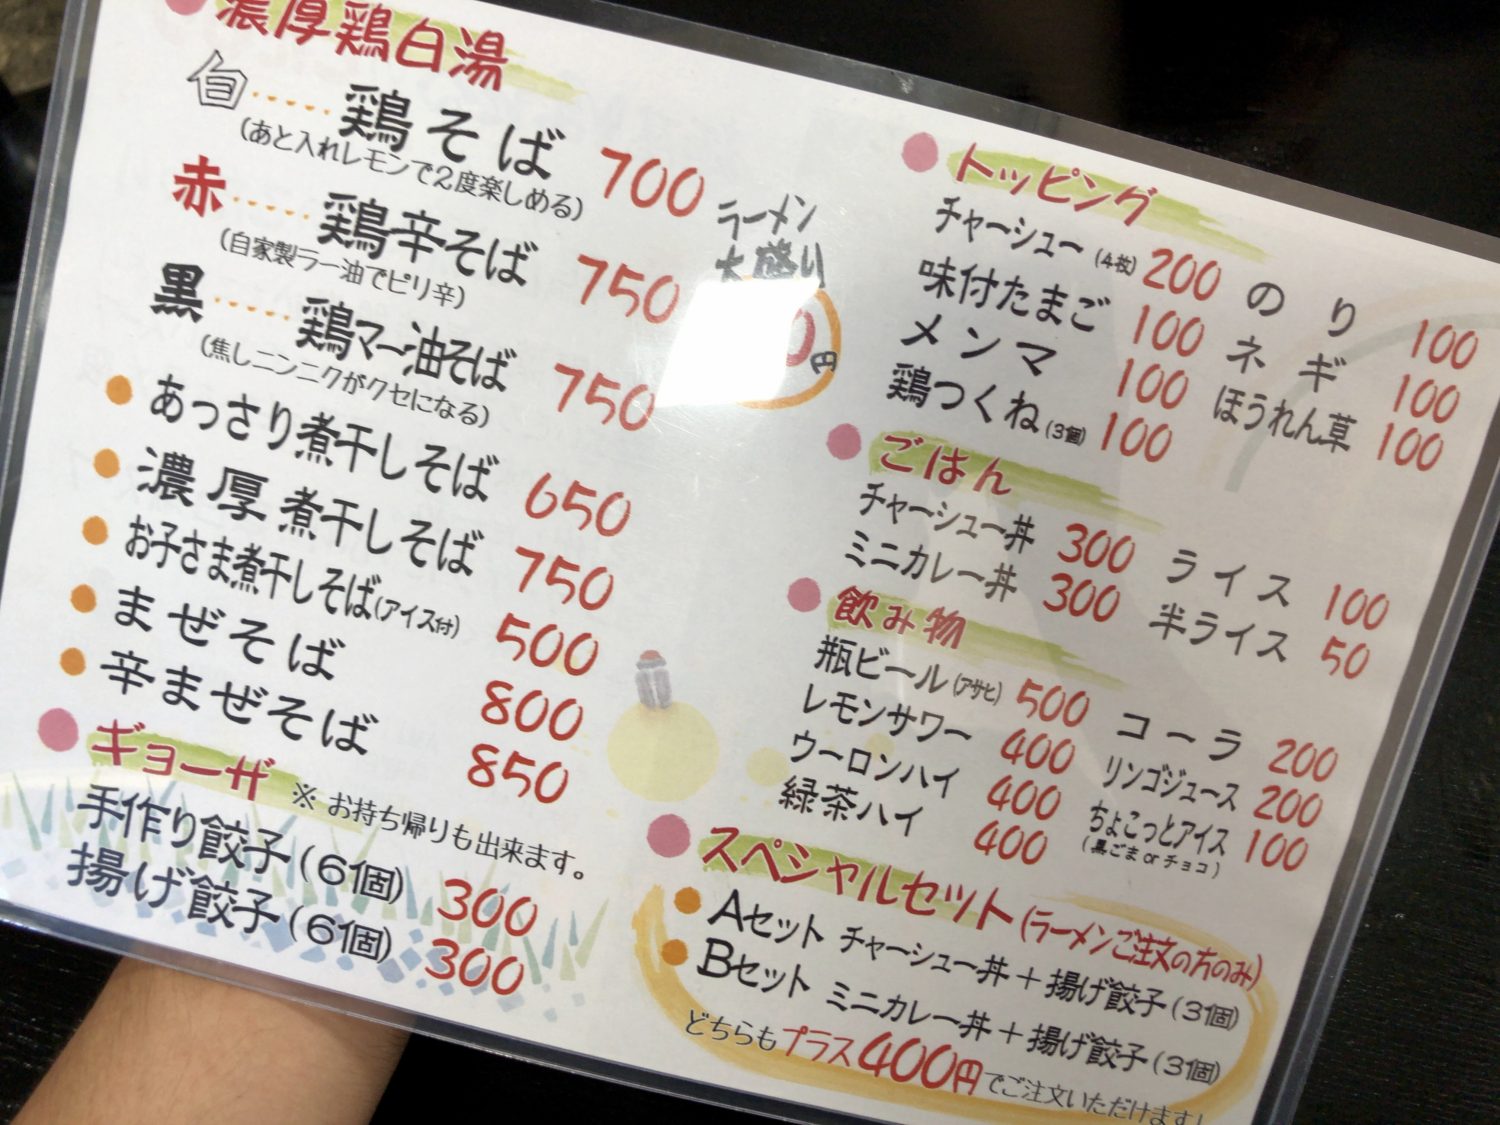 濃厚鶏白湯
白……鶏そば 700
(あと入れレモンで2度楽しめる)
赤……鶏辛そば 750
(自家製ラー油でピリ辛)
黒……鶏マー油そば 750
(焦しニンニクがクセになる)
あっさり煮干しそば 650
濃厚煮干しそば 750
お子さま煮干しそば(アイス付) 500
まぜそば 800
辛まぜそば 850
ラーメン
大盛り
0円
ギョーザ ※お持ち帰りも出来ます。
手作り餃子(6個) 300
揚げ餃子(6個) 300
トッピング
チャーシュー(4枚) 200 のり 100
味付たまご 100 ネギ 100
メンマ 100 ほうれん草 100
鶏つくね(3個) 100
ごはん
チャーシュー丼 300 ライス 100
ミニカレー丼 300 半ライス 50
飲み物
瓶ビール(アサヒ) 500 コーラ 200
レモンサワー 400 リンゴジュース 200
ウーロンハイ 400 ちょこっとアイス 100
緑茶ハイ 400 (黒ごまorチョコ)
スペシャルセット(ラーメンご注文の方のみ)
Aセット チャーシュー丼+揚げ餃子(3個)
Bセット ミニカレー丼+揚げ餃子(3個)
どちらもプラス400円でご注文いただけます!